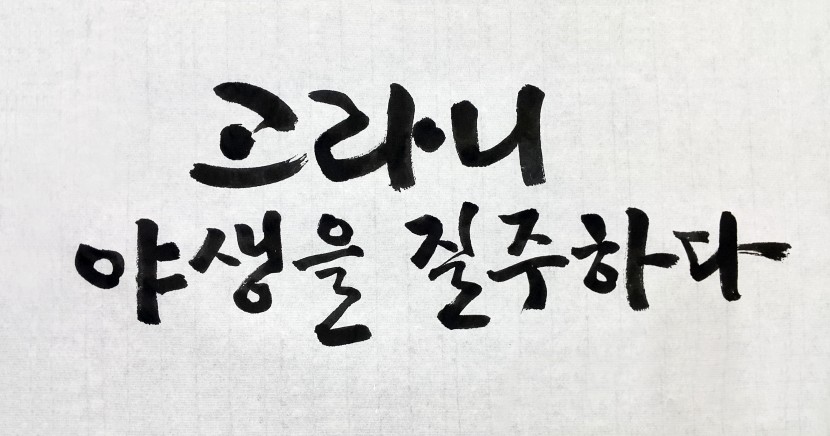 고라니
야생을 질주하다